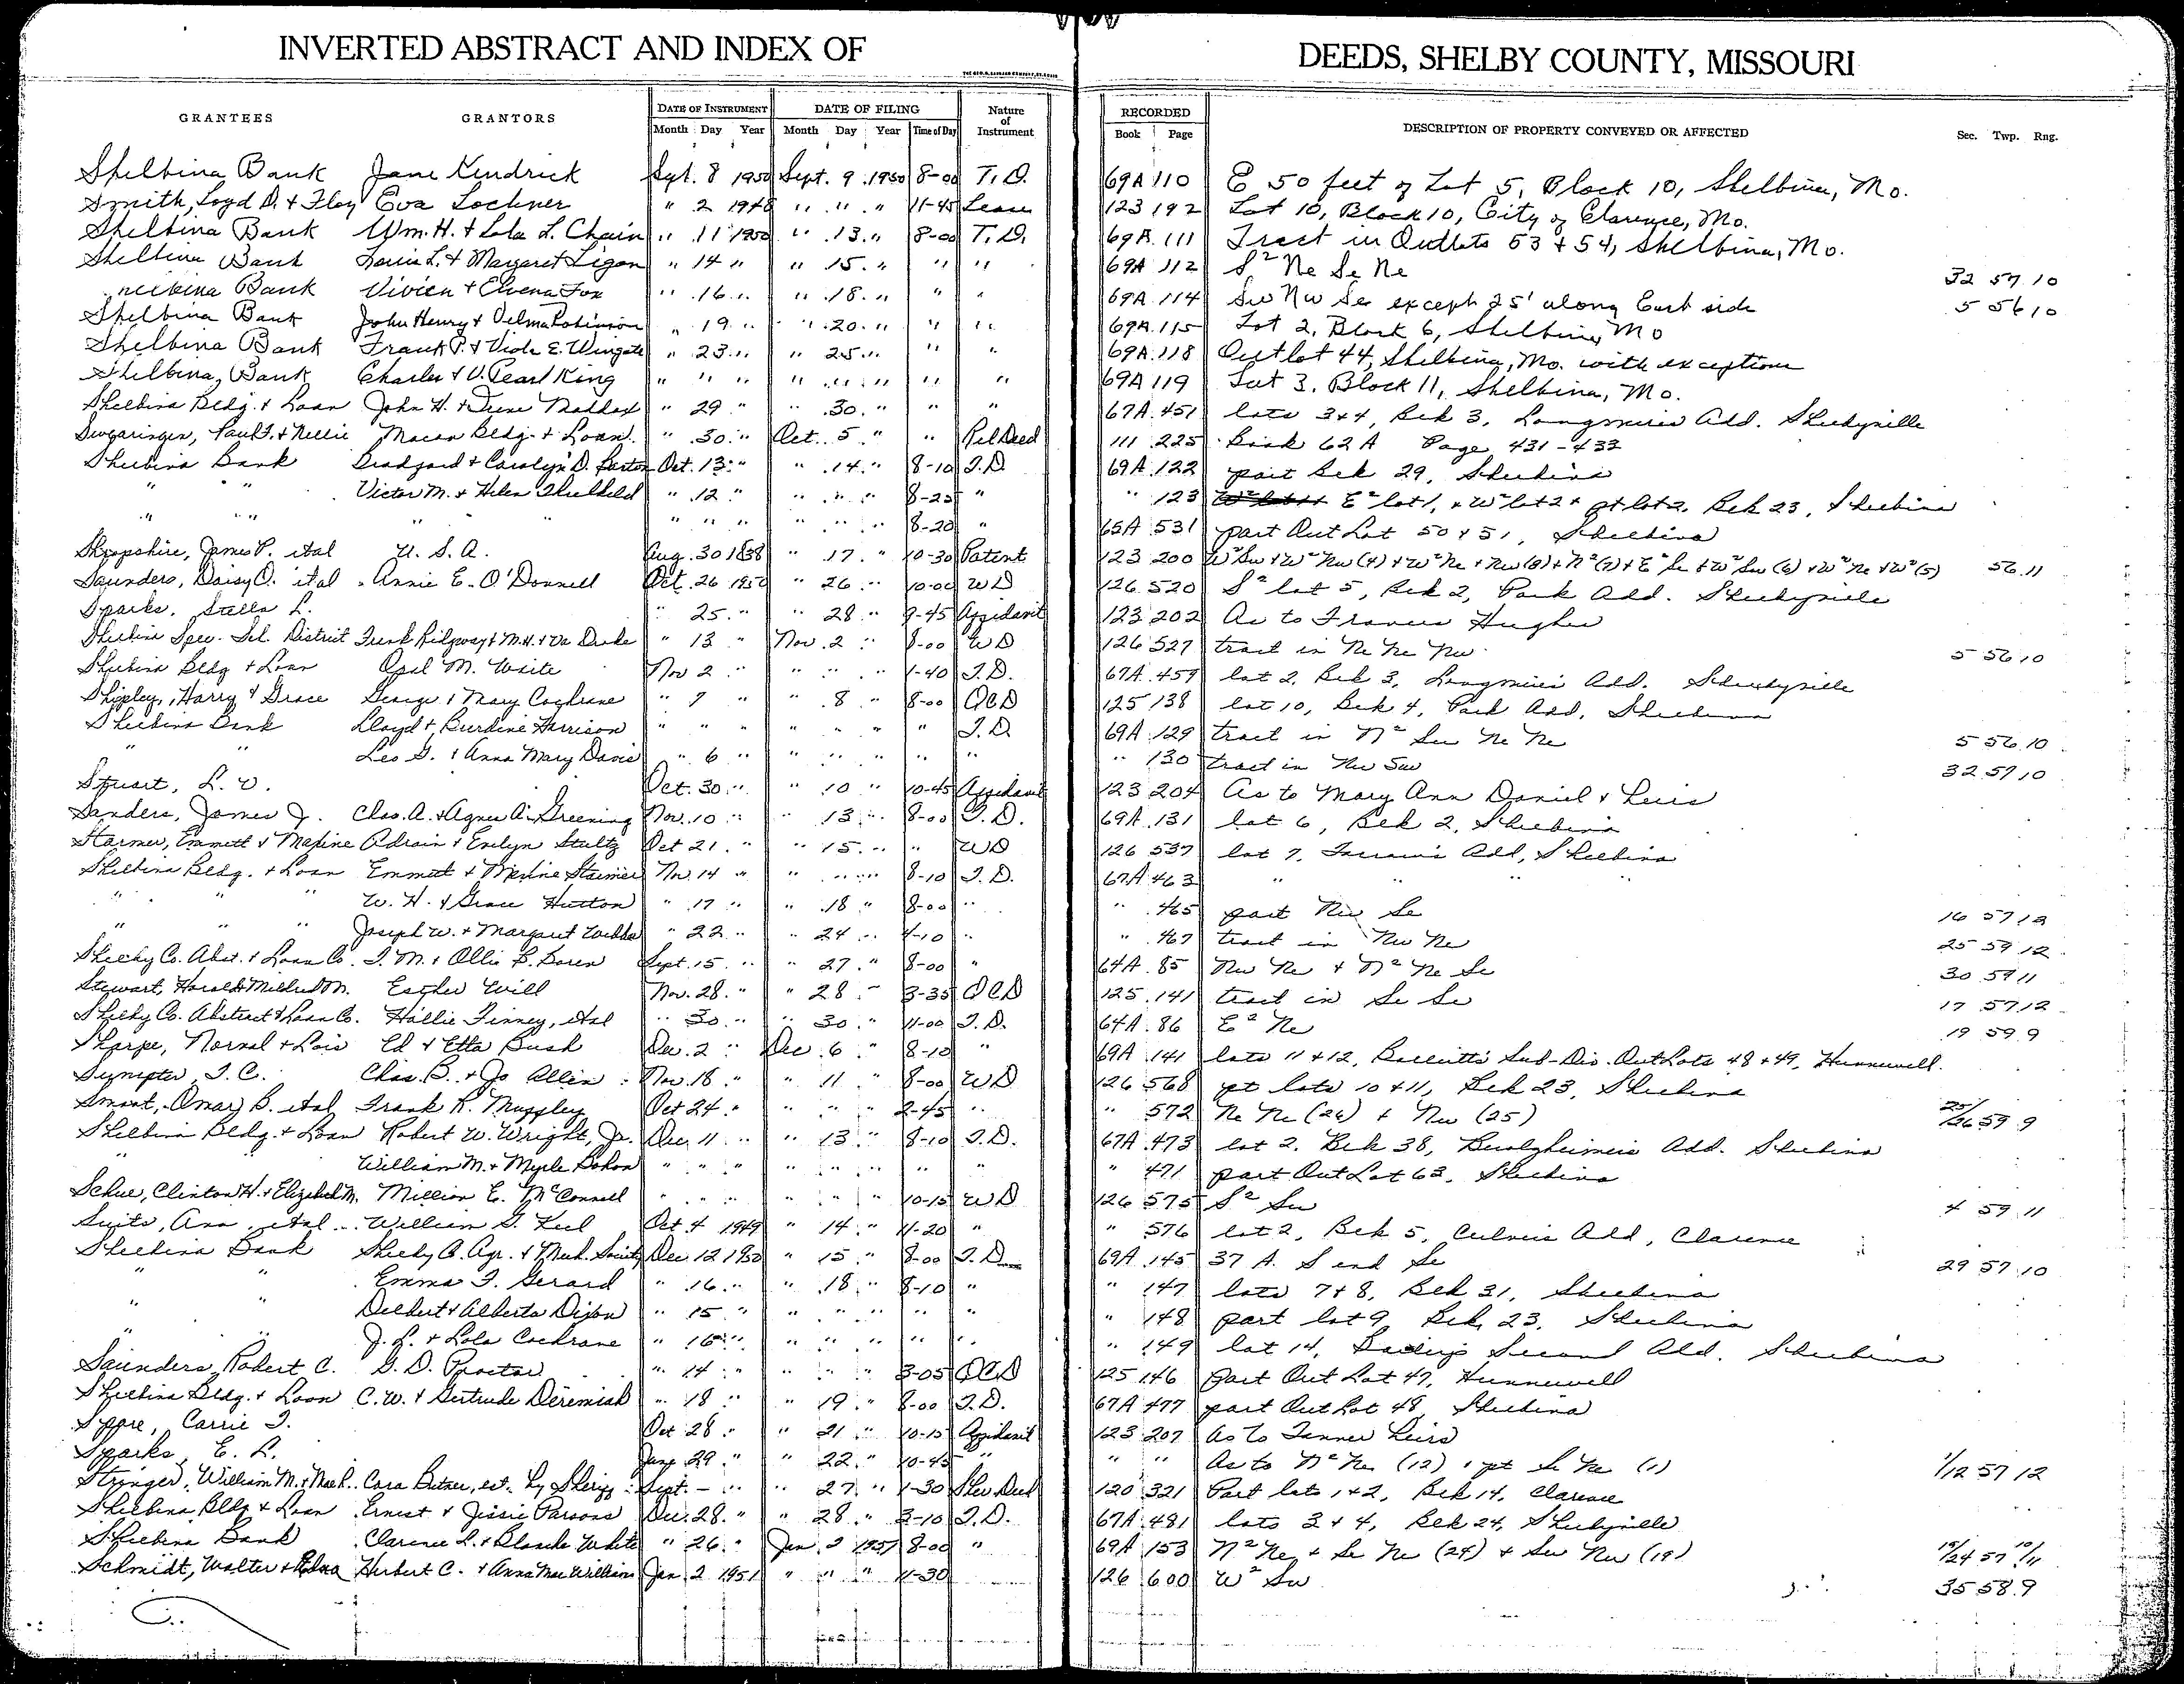 INVERTED ABSTRACT AND INDEX OF DEEDS, SHELBY COUNTY, MISSOURI
GRANTEES GRANTORS DATE OF INSTRUMENT DATE OF FILING Nature of Instrument RECORDED DESCRIPTION OF PROPERTY CONVEYED OR AFFECTED Sec. Twp. Rng.
Month Day Year Month Day Year Time of Day Book Page
Shelbina Bank Jane Kendrick Sept. 8 1950 Sept. 9 1950 8-00 T.D. 69A 110 E 50 feet of Lot 5, Block 10, Shelbina, Mo.
Smith, Loyd D. + Floy Eva Lochner " 2 1948 " " " 11-45 Lease 123 192 Lot 10, Block 10, City of Clarence, Mo.
Shelbina Bank Wm. H. + Lola L. Chain " 11 1950 " 13 " 8-00 T.D. 69A 111 Tract in Outlots 53 + 54, Shelbina, Mo.
Shelbina Bank Louis L. + Margaret Ligon " 14 " " 15 " " " 69A 112 S² Ne Se Ne 32 57 10
Shelbina Bank Vivien + Elvena Fox " 16 " " 18 " " " 69A 114 Sw Nw Se except 25' along East side 5 56 10
Shelbina Bank John Henry + Velma Robinson " 19 " " 20 " " " 69A 115 Lot 2, Block 6, Shelbina, Mo
Shelbina Bank Frank P. + Viola E. Wingate " 23 " " 25 " " " 69A 118 Outlot 44, Shelbina, Mo. with exceptions
Shelbina, Bank Charles + V. Pearl King " " " " " " " " 69A 119 Lot 3, Block 11, Shelbina, Mo.
Shelbina Bldg. + Loan John H. + Irene Maddox " 29 " " 30 " " " 67A 451 lots 3+4, Blk 3, Longmires Add. Shelbyville
Swearingen, Paul F. + Nellie Macon Bldg. + Loan " 30 " Oct. 5 " " Rel Deed 111 225 Book 62A Page 431-432
Shelbina Bank Bradford + Carolyn D. Oct. 13 " " 14 " 8-10 T.D. 69A 122 part Blk 29, Shelbina
" " Victor M. + Helen Threlkeld " 12 " " " " 8-25 " " 123 E² lot 1, + W² lot 2 + pt lot 2, Blk 23, Shelbina
" " " " " " " " " 8-20 " 65A 531 part Out Lot 50 + 51, Shelbina
Shropshire, James P. etal U. S. A. Aug. 30 1838 " 17 " 10-30 Patent 123 200 W² Sw + W² Nw (4) + W² Ne + Nw (8) + N² (7) + E² Se + W² Sw (6) + W² Ne + W² (5) 56 11
Saunders, Daisy O. etal Annie E. O'Donnell Oct. 26 1950 " 26 " 10-00 WD 126 520 S² lot 5, Blk 2, Park Add. Shelbyville
Sparks, Stella L. " 25 " " 28 " 9-45 Affidavit 123 202 As to Francis Hughes
Shelbina Spec. Scl. District Frank Ridgway + M.H. + Va Drake " 13 " Nov. 2 " 8-00 WD 126 527 tract in Ne Ne Nw 5 56 10
Shelbina Bldg + Loan Opal M. Waite Nov 2 " " " " 1-40 T.D. 67A 459 lot 2, Blk 3, Longmires Add. Shelbyville
Shipley, Harry + Grace George + Mary Cochrane " 7 " " 8 " 8-00 QCD 125 138 lot 10, Blk 4, Park Add, Shelbina
Shelbina Bank Lloyd + Burdine Harrison " " " " " " " T.D 69A 129 tract in N² Sw Ne Ne 5 56 10
" " Leo G. + Anna Mary Davis " 6 " " " " " " " 130 tract in Nw Sw 32 57 10
Stuart, L. V. Oct. 30 " " 10 " 10-45 Affidavit 123 204 As to Mary Ann Daniel + Heirs
Sanders, James J. Chas. A. + Agnes A. Greening Nov. 10 " " 13 " 8-00 T.D. 69A 131 lot 6, Blk 2, Shelbina
Starmer, Emmett + Maxine Adrain + Evelyn Stultz Oct 21 " " 15 " " WD 126 537 lot 7, Add, Shelbina
Shelbina Bldg. + Loan Emmett + Maxine Starmer Nov. 14 " " " " 8-10 T.D. 67A 463 " " " "
" " " W. H. + Grace Hutton " 17 " " 18 " 8-00 " " 465 part Nw Se 16 57 12
" " " Joseph W. + Margaret " 22 " " 24 " 4-10 " " 467 tract in Nw Ne 25 59 12
Shelby Co. Abst. + Loan Co. T. M. + Ollie B. Boren Sept. 15 " " 27 " 8-00 " 64A 85 Nw Ne + N² Ne Se 30 59 11
Stewart, Harold + Mildred M. Esther Will Nov. 28 " " 28 " 3-35 QCD 125 141 tract in Se Se 17 57 12
Shelby Co. Abstract + Loan Co. Hallie Finney, etal " 30 " " 30 " 11-00 T.D. 64A 86 E² Ne 19 59 9
Sharpe, Norval + Lois Ed + Etta Bush Dec. 2 " Dec. 6 " 8-10 " 69A 141 lots 11 + 12, Sub-Div. Out Lots 48 + 49, Hunnewell
Sympter, T. C. Chas. B. + Jo Allen Nov. 18 " " 11 " 8-00 WD 126 568 pt lots 10 + 11, Blk 23, Shelbina
Smoot, Omar B. etal Frank R. Muffley Oct 24 " " " " 2-45 " " 572 Ne Ne (26) + Nw (25) 25/26 59 9
Shelbina Bldg. + Loan Robert W. Wright, Jr. Dec. 11 " " 13 " 8-10 T.D. 67A 473 lot 2, Blk 38, Benlzheimers Add. Shelbina
" William M. + Myrle Bohon " " " " " " " " " 471 part Out Lot 63, Shelbina
Schue, Clinton H. + Elizabeth M. Million E. McConnell " " " " " " 10-15 WD 126 575 S² Sw 4 59 11
Suits, Ann, etal William G. Keel Oct 4 1949 " 14 " 11-20 " " 576 lot 2, Blk 5, Culvers Add, Clarence
Shelbina Bank Shelby Co. Agr. + Mech. Society Dec 12 1950 " 15 " 8-00 T.D. 69A 145 37 A. S end Se 29 57 10
" " Emma F. Gerard " 16 " " 18 " 8-10 " " 147 lots 7 + 8, Blk 31, Shelbina
" " Delbert + Alberta Dixon " 15 " " " " " " " 148 part lot 9, Blk 23, Shelbina
" " J. L. + Lola Cochrane " 16 " " " " " " " 149 lot 14, Second Add. Shelbina
Saunders, Robert C. G. D. Proctor " 14 " " " " 3-05 QCD 125 146 part Out Lot 47, Hunnewell
Shelbina Bldg. + Loan C. W. + Gertrude Deremiah " 18 " " 19 " 8-00 T.D. 67A 477 part Out Lot 48, Shelbina
Carrie T. Oct 28 " " 21 " 10-15 Affidavit 123 207 As to Tanner Heirs
Sparks, E. L. Jany. 29 " " 22 " 10-45 " " " As to N² Ne (12) + pt Se Ne (1) 1/12 57 12
Stringer, William M. + Mae R. Cora Bitner, est. by Sheriff Sept. — " " 27 " 1-30 Shrv Deed 120 321 Part lots 1 + 2, Blk 14, Clarence
Shelbina Bldg + Loan Ernest + Jessie Parsons Dec. 28 " " 28 " 3-10 T.D. 67A 481 lots 3 + 4, Blk 24, Shelbyville
Shelbina Bank Clarence L. + Blanche White " 26 " Jan. 2 1951 8-00 " 69A 153 N² Ne + Se Ne (24) + Sw Nw (19) 19/24 57 10/11
Schmidt, Walter + Edna Herbert C. + Anna Mae Williams Jan. 2 1951 " " " 11-30 126 600 W² Sw 35 58 9